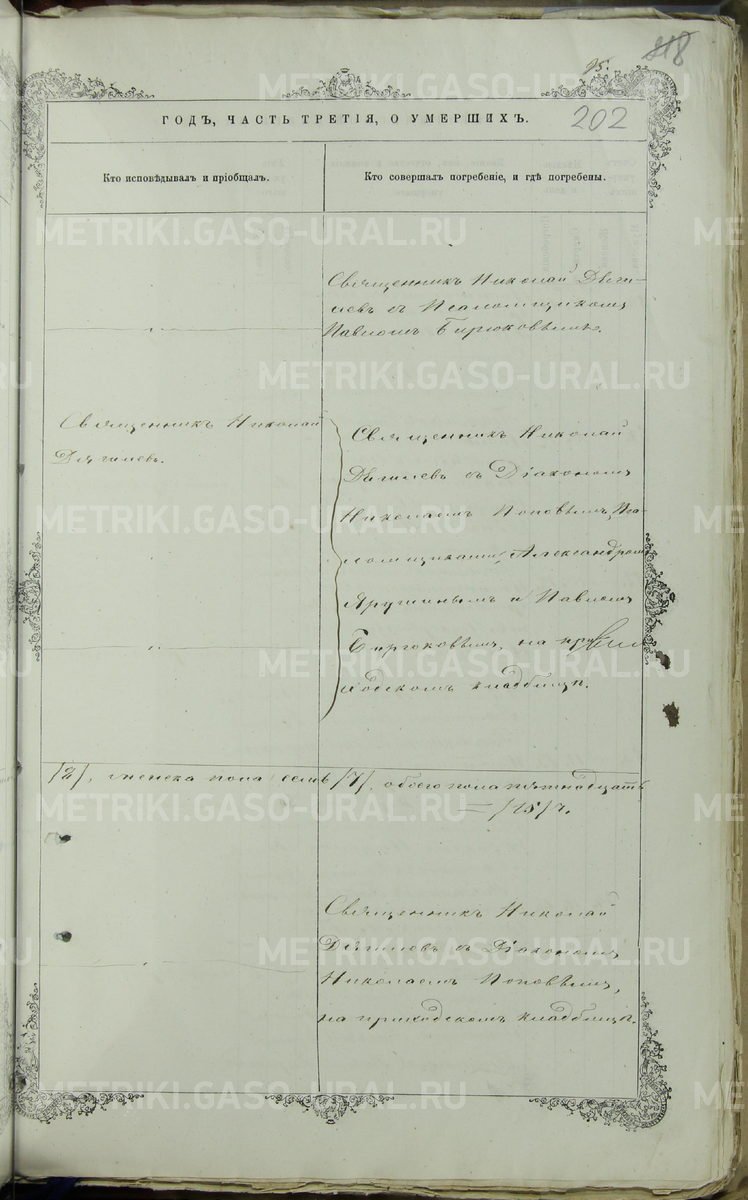 95.
118
202
ГОДЪ, ЧАСТЬ ТРЕТІЯ, О УМЕРШИХЪ.
Кто исповѣдывалъ и пріобщалъ.
Кто совершалъ погребеніе, и гдѣ погребены.
Священникъ Николай Дяги-
левъ съ Псаломщикомъ
Павломъ Бирюковымъ.
Священникъ Николай
Дягилевъ.
Священникъ Николай
Дягилевъ съ Діакономъ
Николаемъ Поповымъ, Пса-
ломщиками, Александромъ
Ярушинымъ и Павломъ
Бирюковымъ, на при-
ходскомъ кладбищѣ.
/2/, женска пола семь /7/, обоего пола пятнадцать
= /15/
Священникъ Николай
Дягилевъ съ Діакономъ
Николаемъ Поповымъ,
на приходскомъ кладбищѣ.
METRIKI.GASO-URAL.RU